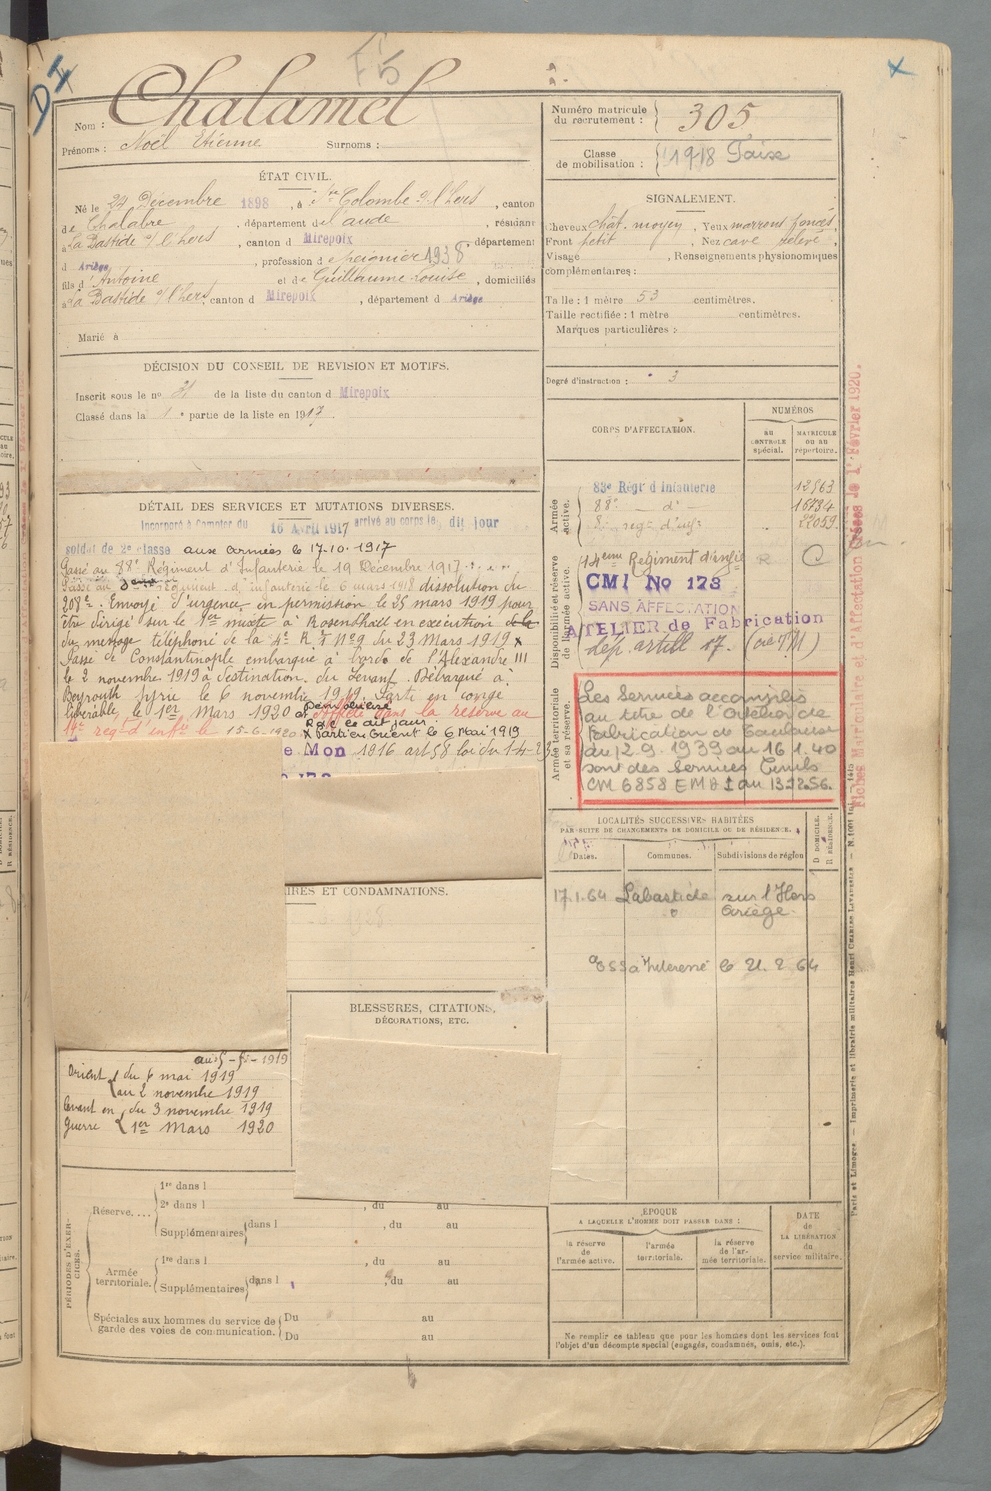 DI
F5
Nom : Chalamel
Prénoms : Noël Etienne Surnoms :
ÉTAT CIVIL.
Né le 24 Décembre 1898, à Ste Colombe s/ l'hers, canton
de Chalabre, département de l'aude, résidant
à La Bastide s/ l'hers, canton d Mirepoix, département
d Ariège, profession d 1938
fils d'Antoine et de Guillaume Louise, domiciliés
à La Bastide s/ l'hers, canton d Mirepoix, département d Ariège
Marié à
DÉCISION DU CONSEIL DE REVISION ET MOTIFS.
Inscrit sous le no 21 de la liste du canton d Mirepoix
Classé dans la 1e partie de la liste en 1917
DÉTAIL DES SERVICES ET MUTATIONS DIVERSES.
Incorporé à Compter du 16 Avril 1917 arrivé au corps le dit jour
soldat de 2e classe aux armées le 17.10.1917
Passé au 88e Régiment d'Infanterie le 19 Décembre 1917
Passé au régiment d'infanterie le 6 mars 1918 dissolution du
208e. Envoyé d'urgence en permission le 25 mars 1919 pour
être dirigé sur le 1er mixte à Rosenthaël en exécution de la
du message téléphoné de la 4e R I No 9 du 23 Mars 1919 x
Passé de Constantinople embarqué à bord de l'Alexandre III
le 2 novembre 1919 à destination du Levant. Débarqué à
Beyrouth Syrie le 6 novembre 1919. Parti en congé
libérable le 1er Mars 1920 Démobilisé
et Affecté dans la réserve au
R.d.C le dit jour.
14e régt d'infie le 15-6-1920 x Parti en Orient le 6 Mai 1919
e Mon 1916 art 58 loi du 1-4-2
IRES ET CONDAMNATIONS.
BLESSURES, CITATIONS,
DÉCORATIONS, ETC.
au 5-5-1919
Orient du 6 mai 1919
au 2 novembre 1919
Levant en du 3 novembre 1919
Guerre 1er Mars 1920
PÉRIODES D'EXERCICES.
Réserve....
1re dans l
2e dans l , du au
Supplémentaires dans l , du au
Armée territoriale.
1re dans l , du au
Supplémentaires dans l , du au
Spéciales aux hommes du service de garde des voies de communication.
Du au
Du au
Numéro matricule du recrutement : 305
Classe de mobilisation : 1918
SIGNALEMENT.
Cheveux chât. moyen, Yeux marrons foncés,
Front petit, Nez cave relevé
Visage , Renseignements physionomiques
complémentaires :
Taille : 1 mètre 53 centimètres.
Taille rectifiée : 1 mètre centimètres.
Marques particulières :
Degré d'instruction : 3
CORPS D'AFFECTATION.
NUMÉROS
AU CONTROLE spécial.
MATRICULE OU AU répertoire.
Armée active.
83e Régt d Infanterie 12863
88e — d° — 16784
22059
Disponibilité et réserve de l'armée active.
14eme Régiment d'infie R C
CM1 No 173
SANS AFFECTATION
ATELIER de Fabrication
Dép. artill 17.
Armée territoriale et sa réserve.
Les Services accomplis
au titre de l'Atelier de
Fabrication de Toulouse
du 12.9.1939 au 16.1.40
sont des Services Civils
CM 6858 EMA 1 du 13.12.56.
LOCALITÉS SUCCESSIVES HABITÉES
PAR SUITE DE CHANGEMENTS DE DOMICILE OU DE RÉSIDENCE.
Dates. Communes. Subdivisions de région D. DOMICILE. R. RÉSIDENCE.
17.1.64 Labastide sur l'Hers
Ariège
le 21.2.64
ÉPOQUE
A LAQUELLE L'HOMME DOIT PASSER DANS :
la réserve de l'armée active.
l'armée territoriale.
la réserve de l'armée territoriale.
DATE de LA LIBÉRATION du service militaire.
Ne remplir ce tableau que pour les hommes dont les services font
l'objet d'un décompte spécial (engagés, condamnés, omis, etc.).
Fiches Matriculaire et d'Affectation Créées le 1er Février 1920.
Paris et Limoges. — Imprimerie et librairie militaires Henri CHARLES-LAVAUZELLE.